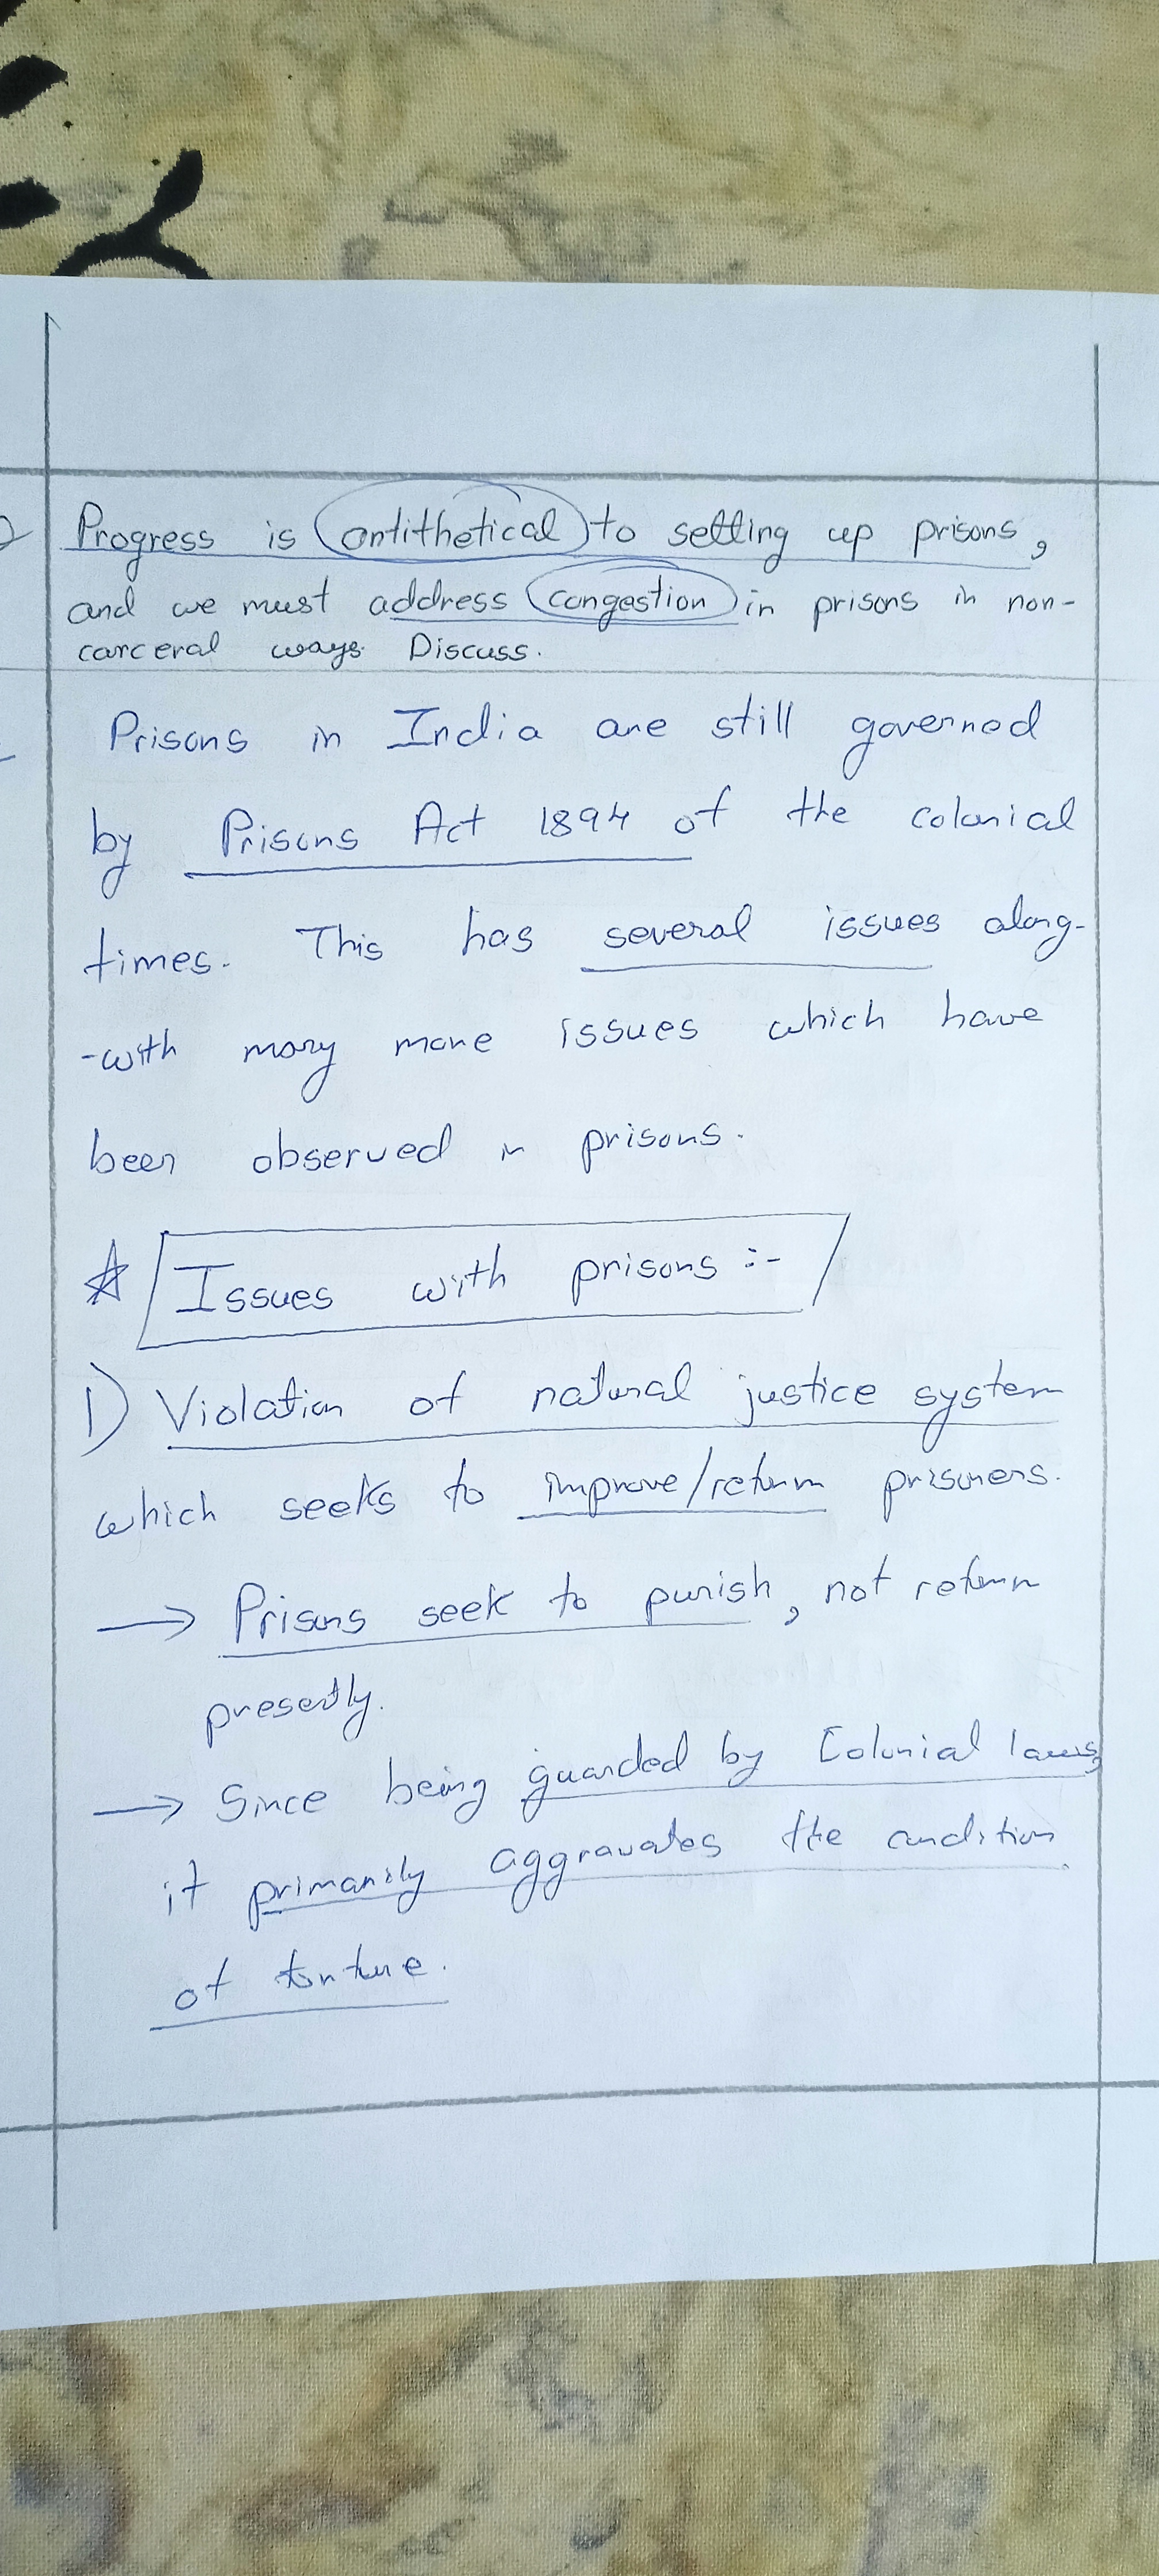 Progress is antithetical to setting up prisons,
and we must address congestion in prisons in non-
carceral ways. Discuss.
Prisons in India are still governed
by Prisons Act 1894 of the colonial
times. This has several issues along-
-with many more issues which have
been observed in prisons.
Issues with prisons :-
1) Violation of natural justice system
which seeks to improve/reform prisoners.
→ Prisons seek to punish, not reform
presently.
→ Since being guarded by Colonial laws,
it primarily aggravates the condition
of torture.